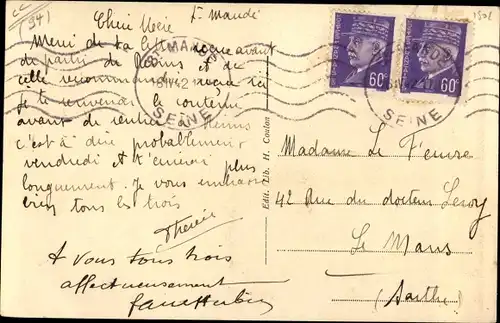 (94)
St Mandé
1501
Chère Marie
Merci de ta lettre reçue avant
de partir de Reims et de
celle recommandée reçue ici
Je te renverrai le contenu
avant de rentrer à Reims
c'est à dire probablement
vendredi et t'écrirai plus
longuement. Je vous embrasse
bien tous les trois
Thérèse
A vous tous trois
affectueusement
ST MANDÉ
SEINE
60c
60c
SEINE
Edit. Lib. H. Coulon
Madame Le Feuvre
42 Rue du docteur Leroy
Le Mans
(Sarthe)